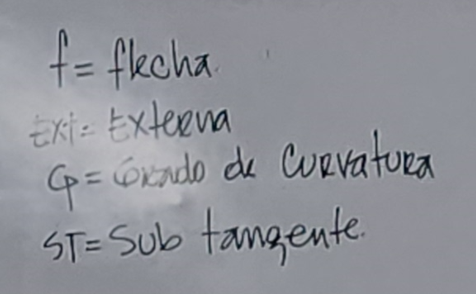 f = flecha.
Ext = Externa
Gp = Grado de Curvatura
ST = Sub tangente.